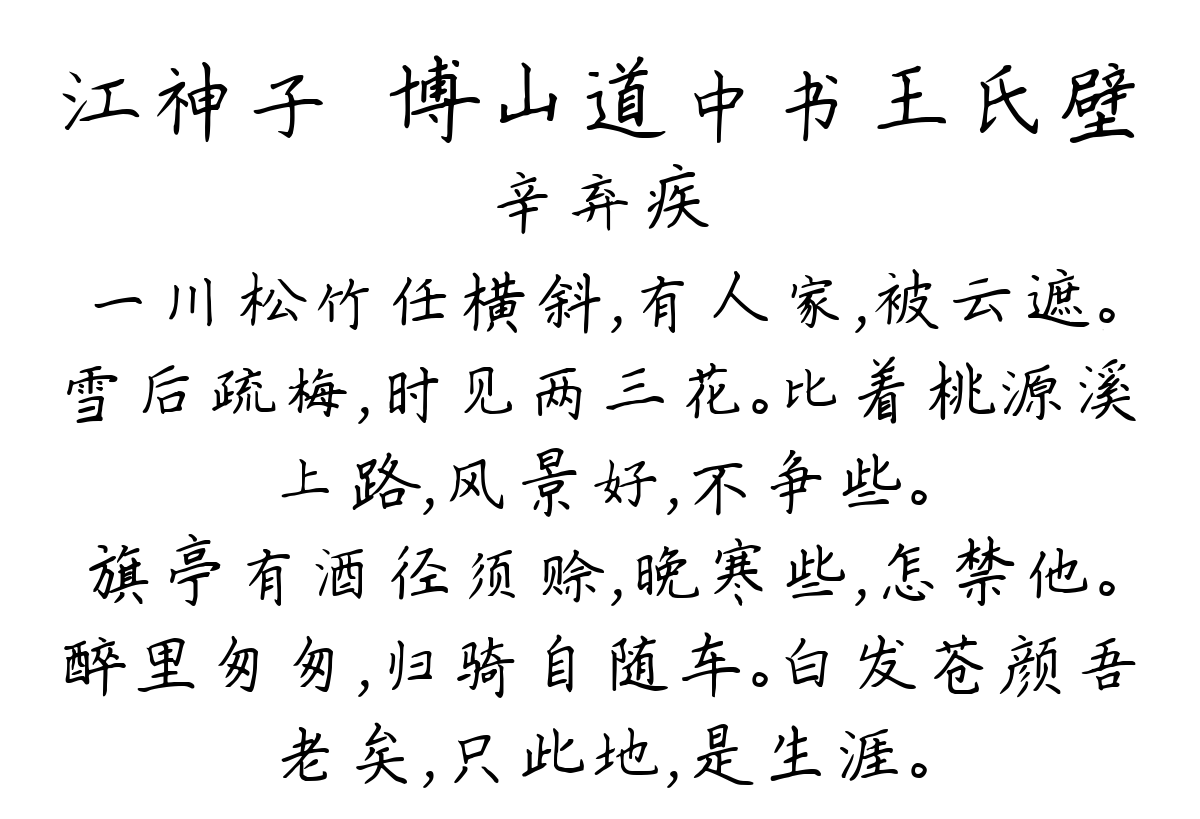 江神子 博山道中书王氏壁
辛弃疾
一川松竹任横斜,有人家,被云遮。
雪后疏梅,时见两三花。比着桃源溪
上路,风景好,不争些。
旗亭有酒径须赊,晚寒些,怎禁他。
醉里匆匆,归骑自随车。白发苍颜吾
老矣,只此地,是生涯。